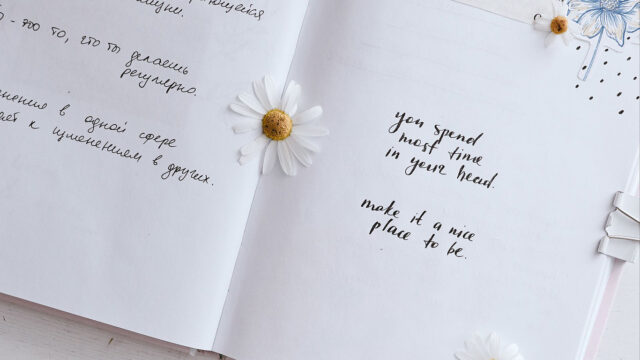 - это то, что ты делаешь
регулярно.
в одной сфере
к изменением в других.
you spend
most time
in your head.
make it a nice
place to be.